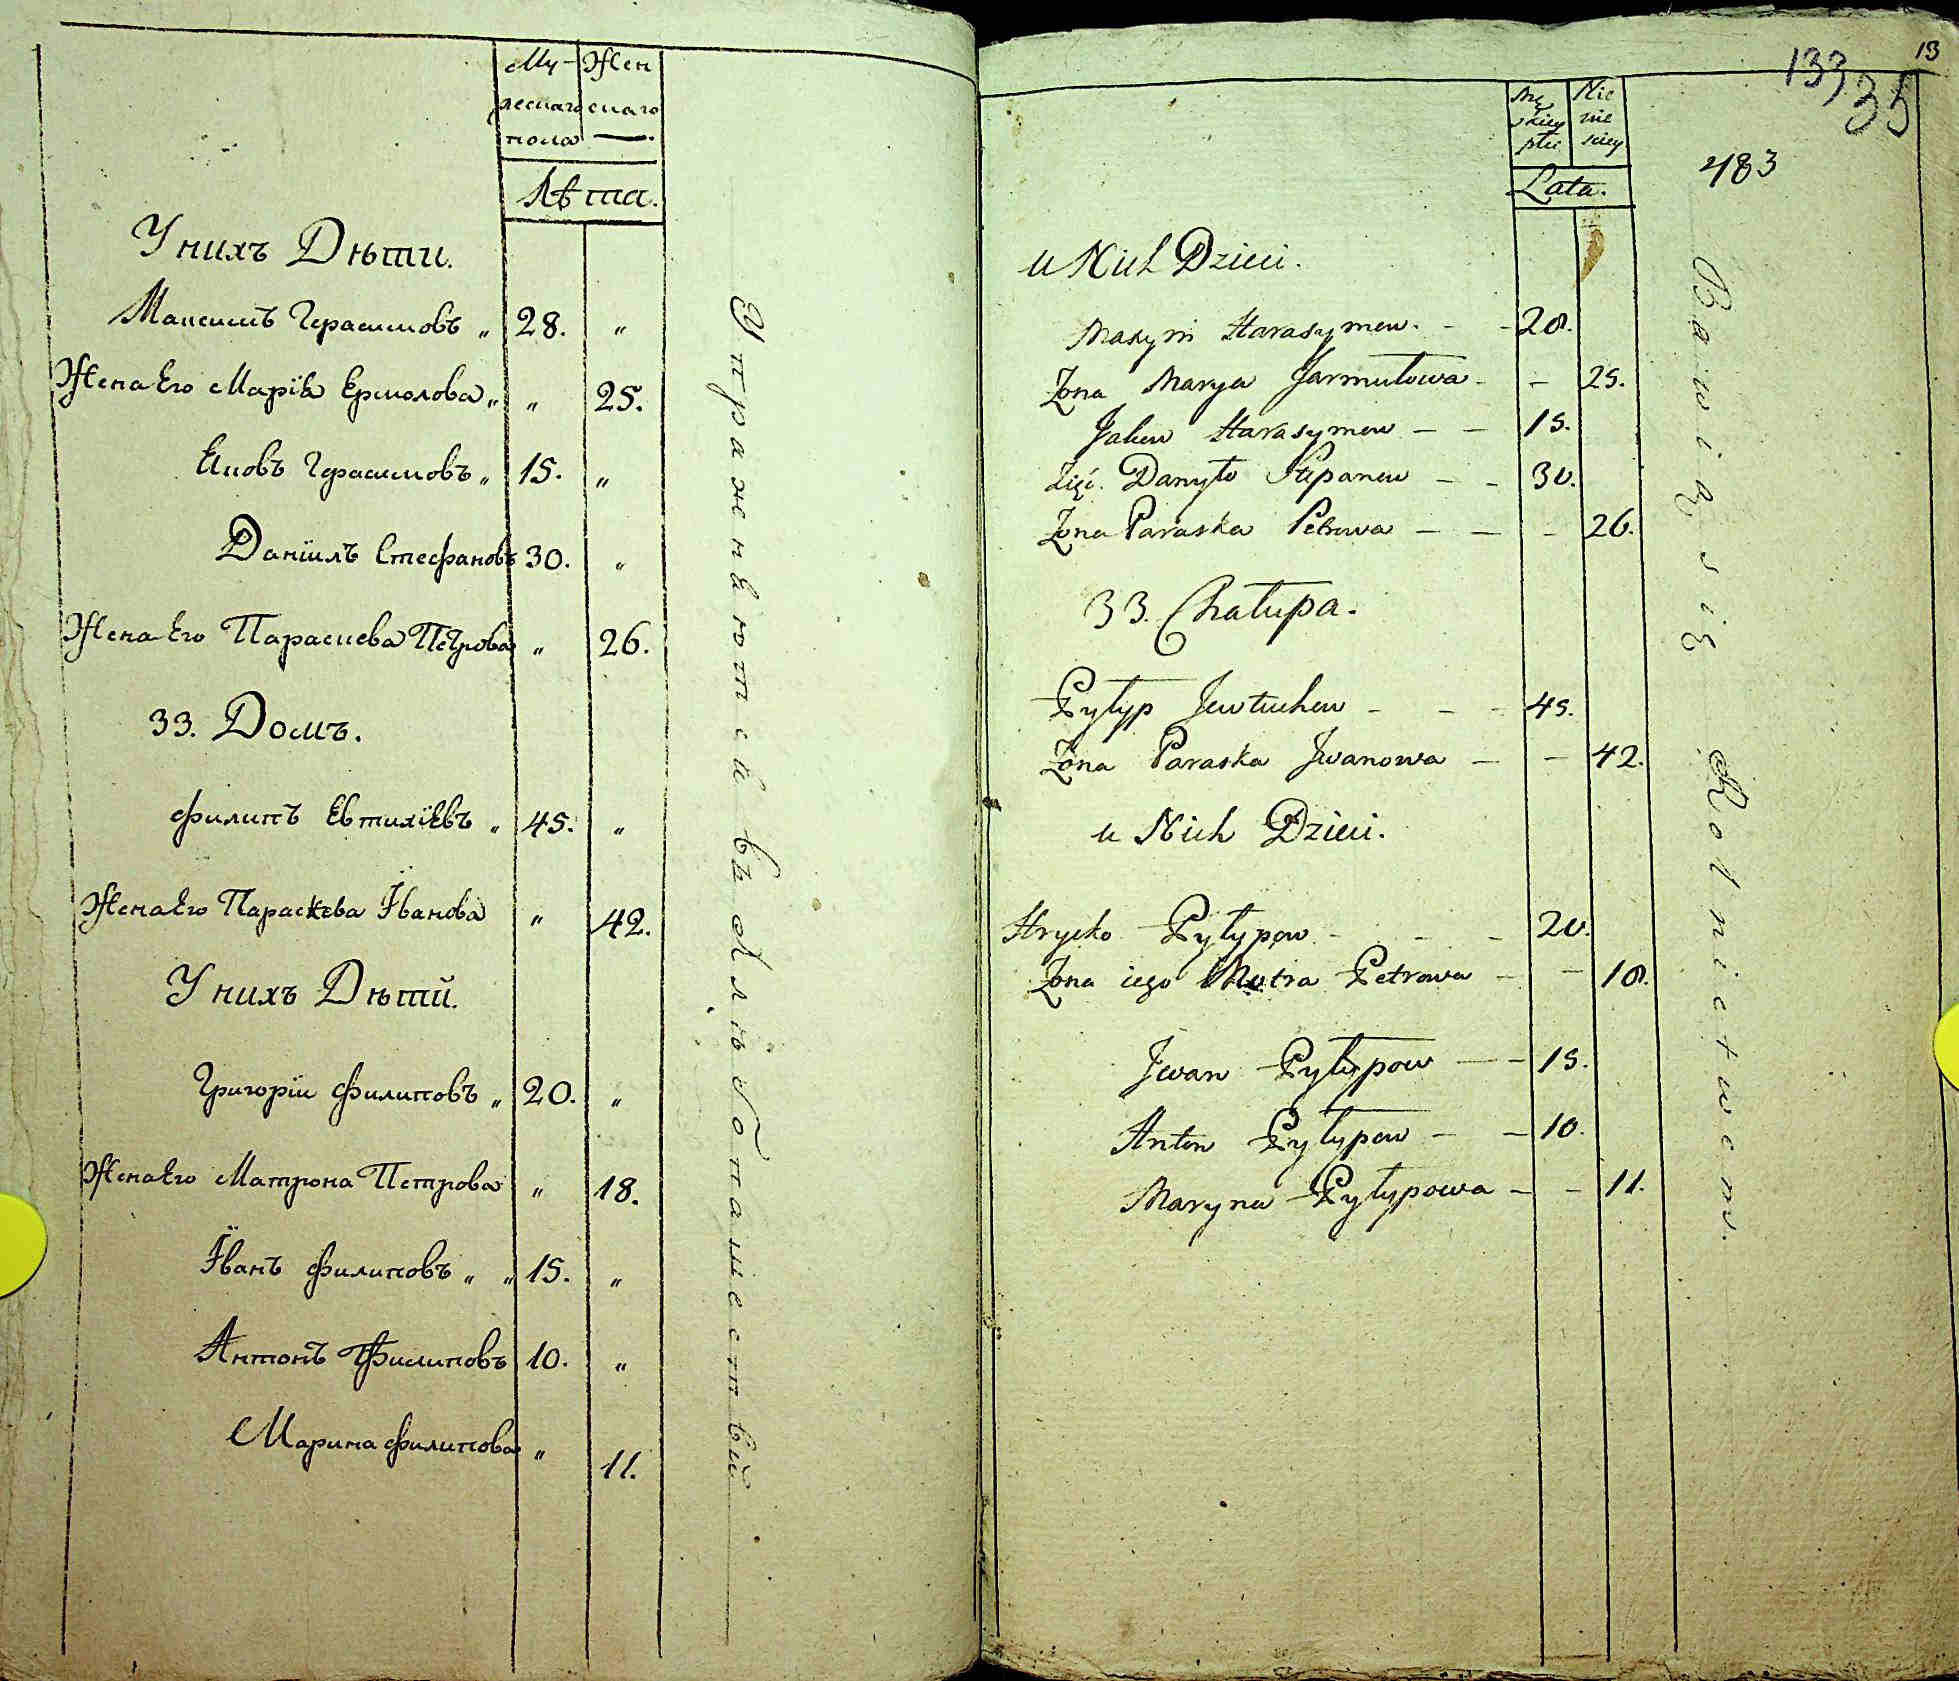 Му- Жен
жескаго скаго
пола —.
Лѣта.
У нихъ Дѣти.
Максимъ Герасимовъ „ 28. „
Жена Его Марія Ермолова „ „ 25.
Яковъ Герасимовъ „ 15. „
Даніилъ Стефановъ 30. „
Жена Его Параскева Петрова „ 26.
33. Домъ.
Филипъ Евтихіевъ „ 45. „
Жена Его Параскева Іванова „ 42.
У нихъ Дѣтй.
Григоріи Филиповъ „ 20. „
Жена Его Матрона Петрова „ 18.
Іванъ Филиповъ „ „ 15. „
Антонъ Филиповъ 10. „
Марина Филипова „ 11.
Упражняются въ хлѣбопашествѣ
13
133
35
483
Mę Nie
skiey wie
płci sciey
Lata.
u Nich Dzieci.
Maxym Harasymow. - - 28.
Żona Marya Jarmułowa - - 25.
Jakow Harasymow - - 15.
Zięć. Danyło Stepanow - - 30.
Żona Paraska Petrowa - - - 26.
33. Chałupa.
Pyłyp Jewtuchow - - - 45.
Żona Paraska Jwanowa - - 42.
u Nich Dzieci.
Hrycko Pyłypow - - - 20.
Żona iego Motra Petrowa - - 18.
Jwan Pyłypow - - 15.
Anton Pyłypow - - 10.
Maryna Pyłypowa - - 11.
Bawią się Rolnictwem.